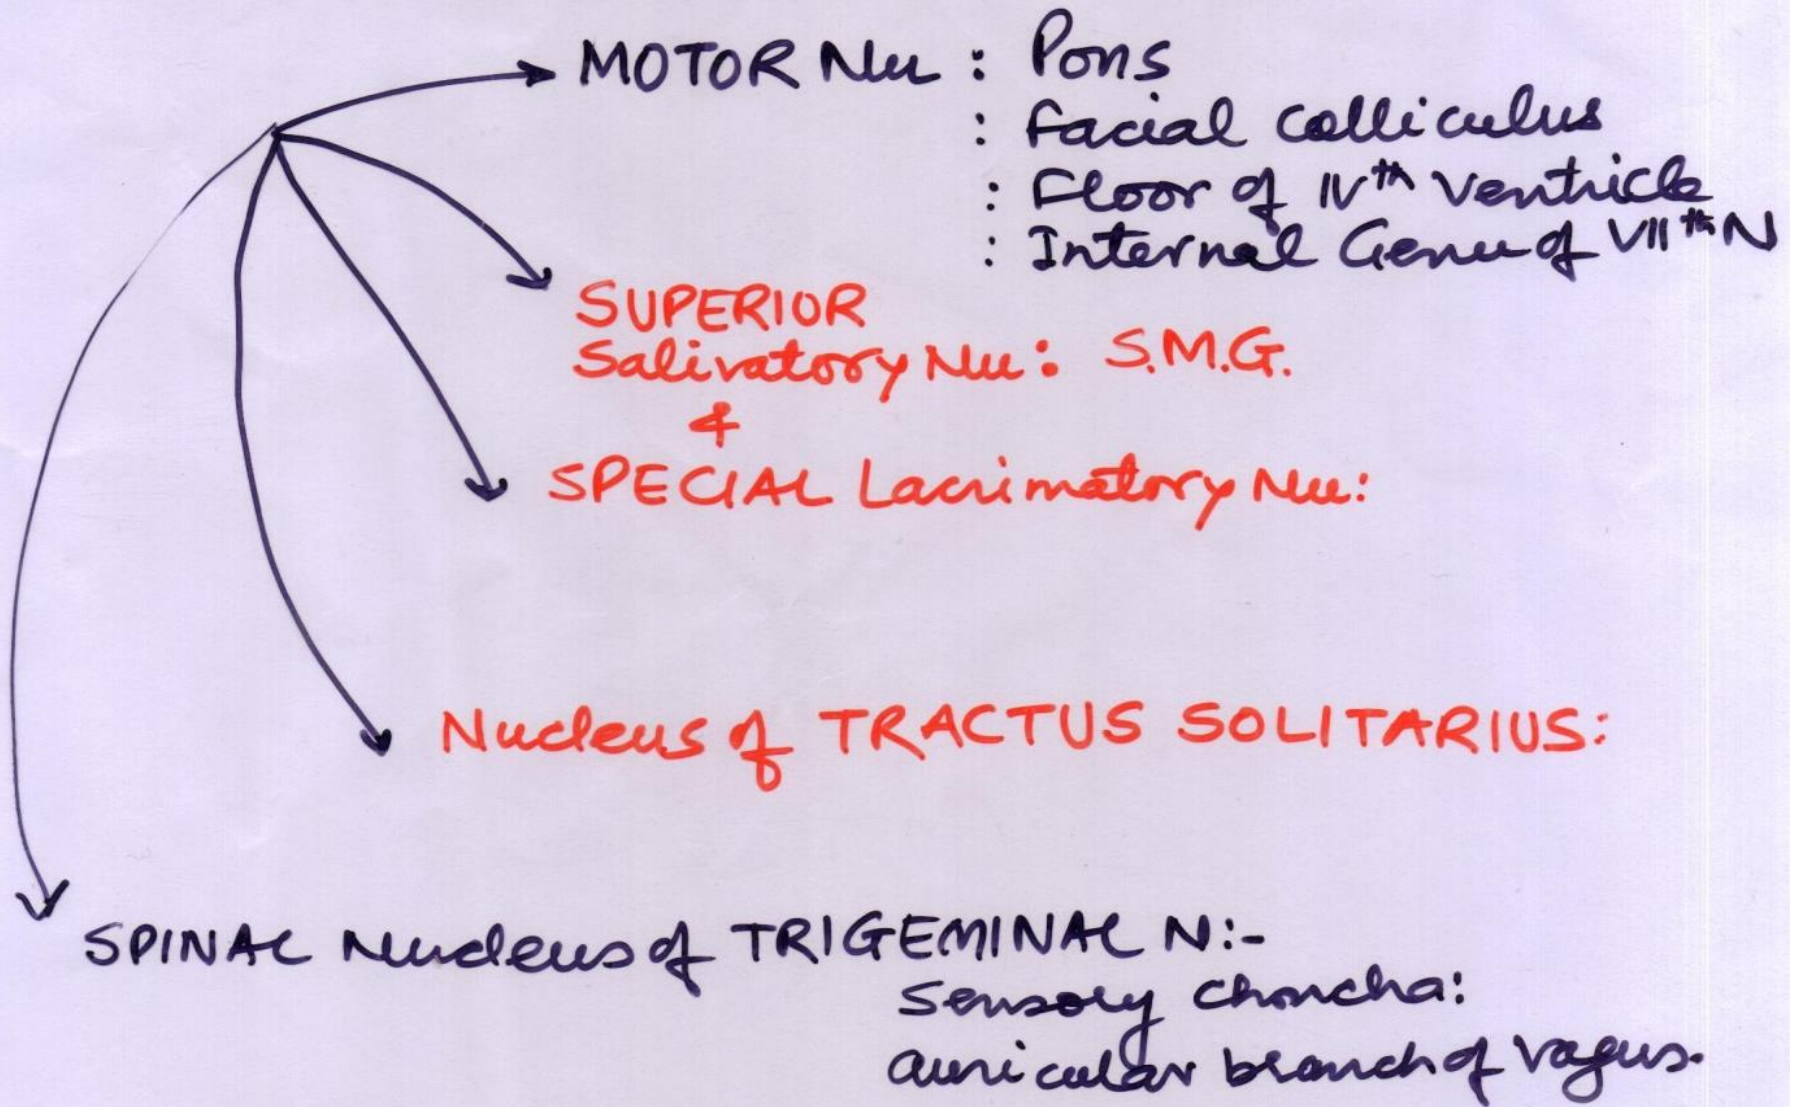 MOTOR Nu : Pons
: Facial Colliculus
: Floor of IVth Ventricle
: Internal Genu of VIIth N
SUPERIOR
Salivatory Nu: S.M.G.
&
SPECIAL Lacrimatory Nu:
Nucleus of TRACTUS SOLITARIUS:
SPINAL Nucleus of TRIGEMINAL N:-
Sensory Choncha:
auricular branch of vagus.